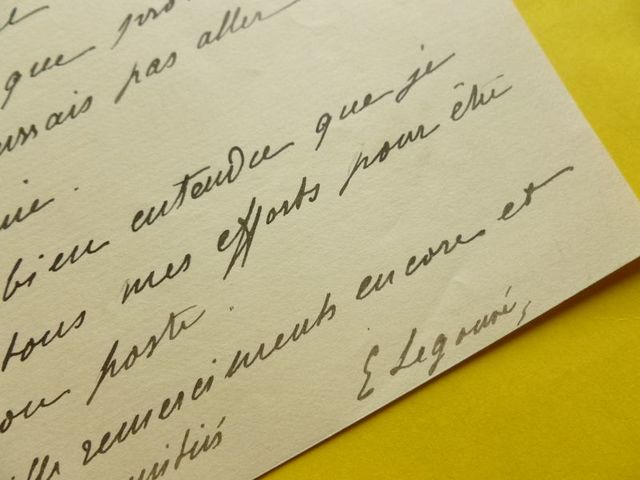 que
ussais pas aller
bien entendu que je
tous mes efforts pour être
poste.
remerciments encore et
E Legouvé,